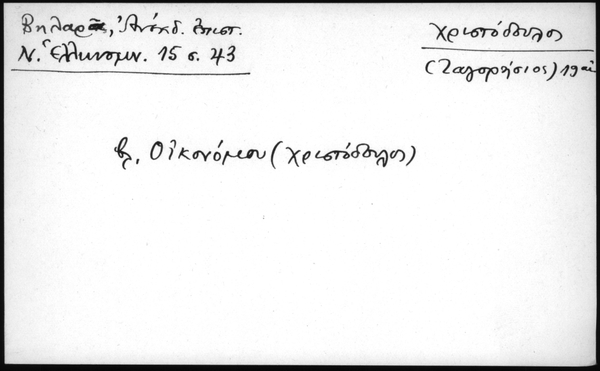 Βηλαρᾶ, Ἀνέκδ. ἐπιστ.
Ν. Ἑλληνομν. 15 σ. 43
Χριστόδουλος
(Ζαγορήσιος) 19 αἰ
βλ. Οἰκονόμου (Χριστόδουλος)